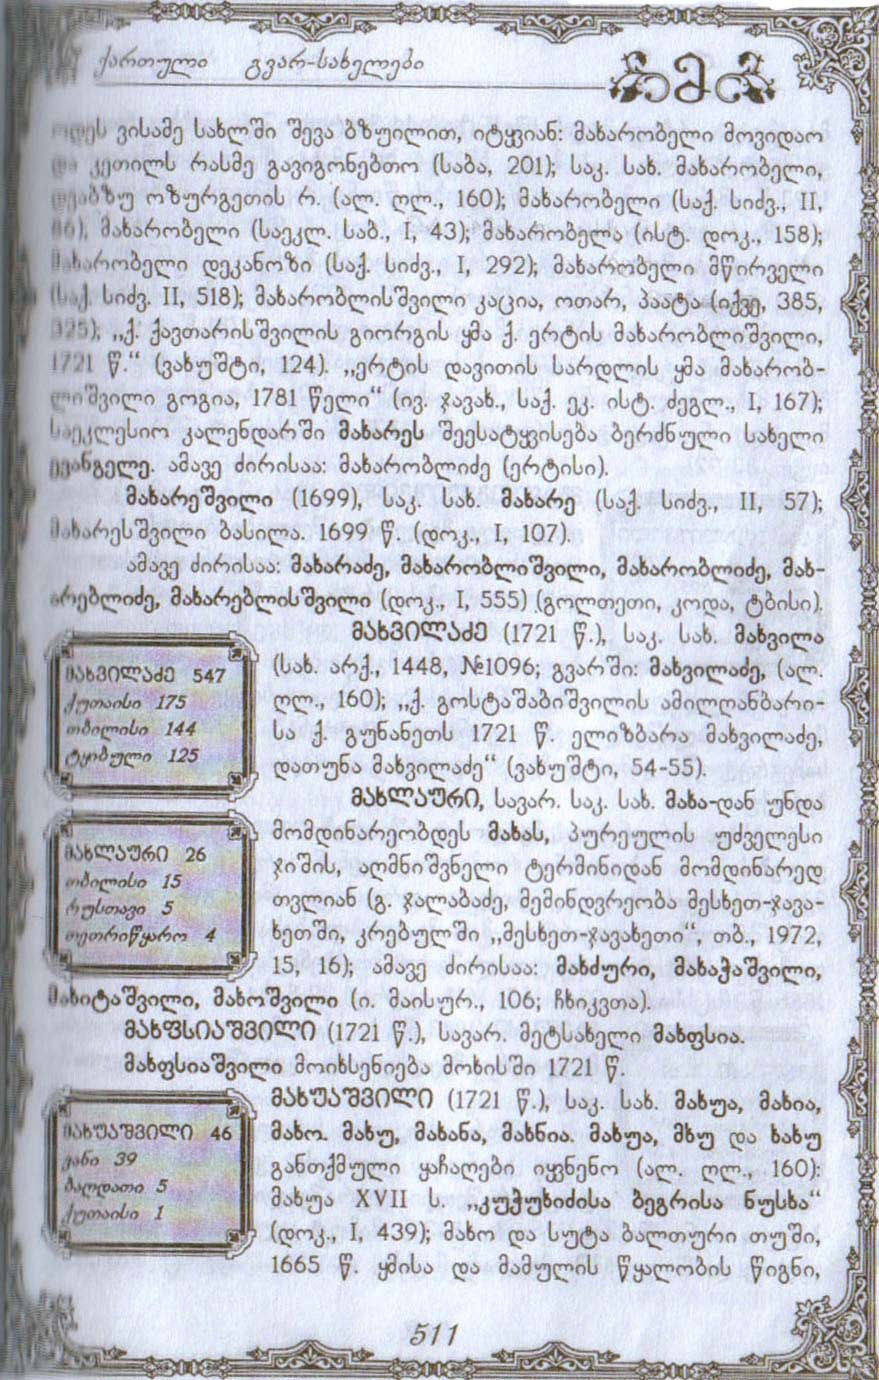 ქართული გვარ-სახელები
მ
ოდეს ვისამე სახლში შევა ბზუილით, იტყვიან: მახარობელი მოვიდაო
და კეთილს რასმე გავიგონებთო (საბა, 201); საკ. სახ. მახარობელი,
ოზურგეთის რ. (ალ. ღლ., 160); მახარობელი (საქ. სიძვ., II,
მახარობელი (საეკლ. საბ., I, 43); მახარობელა (ისტ. დოკ., 158);
მახარობელი დეკანოზი (საქ. სიძვ., I, 292); მახარობელი მწირველი
(საქ. სიძვ. II, 518); მახარობლისშვილი კაცია, ოთარ, პაატა (იქვე, 385,
325); „ქ. ქავთარისშვილის გიორგის ყმა ქ. ერტის მახარობლიშვილი,
1721 წ.“ (ვახუშტი, 124). „ერტის დავითის სარდლის ყმა მახარობ-
ლიშვილი გოგია, 1781 წელი“ (ივ. ჯავახ., საქ. ეკ. ისტ. ძეგლ., I, 167);
საეკლესიო კალენდარში მახარეს შეესატყვისება ბერძნული სახელი
ევანგელე. ამავე ძირისაა: მახარობლიძე (ერტისი).
მახარეშვილი (1699), საკ. სახ. მახარე (საქ. სიძვ., II, 57);
მახარესშვილი ბასილა. 1699 წ. (დოკ., I, 107).
ამავე ძირისაა: მახარაძე, მახარობლიშვილი, მახარობლიძე, მახ-
არებლიძე, მახარებლისშვილი (დოკ., I, 555) (გოლთეთი, კოდა, ტბისი).
მახვილაძე (1721 წ.), საკ. სახ. მახვილა
(სახ. არქ., 1448, №1096; გვარში: მახვილაძე, (ალ.
ღლ., 160); „ქ. გოსტაშაბიშვილის ამილღანბარი-
სა ქ. გუნანეთს 1721 წ. ელიზბარა მახვილაძე,
დათუნა მახვილაძე“ (ვახუშტი, 54-55).
მახვილაძე 547
ქუთაისი 175
თბილისი 144
ტყიბული 125
მახლაური, სავარ. საკ. სახ. მახა-დან უნდა
მომდინარეობდეს მახას, პურეულის უძველესი
ჯიშის, აღმნიშვნელი ტერმინიდან მომდინარედ
თვლიან (გ. ჯალაბაძე, მემინდვრეობა მესხეთ-ჯავა-
ხეთში, კრებულში „მესხეთ-ჯავახეთი“, თბ., 1972,
15, 16); ამავე ძირისაა: მახძური, მახაჭაშვილი,
მახიტაშვილი, მახოშვილი (ი. მაისურ., 106; ჩხიკვთა).
მახლაური 26
თბილისი 15
რუსთავი 5
თეთრიწყარო 4
მახფსიაშვილი (1721 წ.), სავარ. მეტსახელი მახფსია.
მახფსიაშვილი მოიხსენიება მოხისში 1721 წ.
მახუაშვილი (1721 წ.), საკ. სახ. მახუა, მახია,
მახო. მახუ, მახანა, მახნია. მახუა, მხუ და ხახუ
განთქმული ყაჩაღები იყვნენო (ალ. ღლ., 160):
მახუა XVII ს. „კუჭუხიძისა ბეგრისა ნუსხა“
(დოკ., I, 439); მახო და სუტა ბალთური თუში,
1665 წ. ყმისა და მამულის წყალობის წიგნი,
მახუაშვილი 46
ვანი 39
ბაღდათი 5
ქუთაისი 1
511